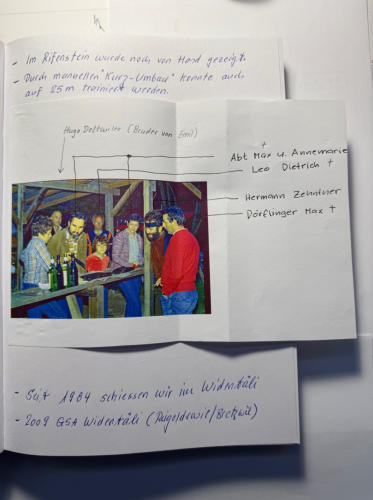 - Im Rifenstein wurde noch von Hand gezeigt.
- Durch manuellen "Kurz-Umbau" konnte auch
auf 25 m trainiert werden.
Hugo Dettwiler (Bruder von Emil)
†
Abt Max u. Annemarie
Leo Dietrich †
Hermann Zehntner
Dörflinger Max †
- Seit 1984 schiessen wir im Widentäli
- 2009 GSA Widentäli (Reigoldswil/Bretzwil)